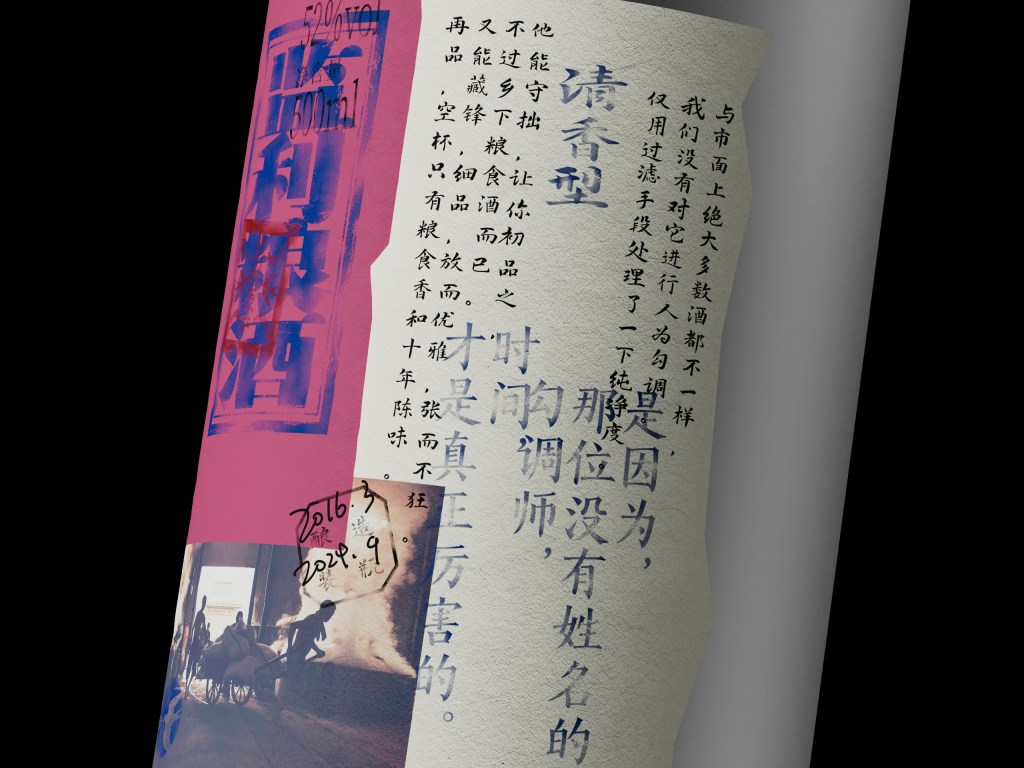 与市面上绝大多数酒都不一样，
我们没有对它进行人为勾调
仅用过滤手段处理了一下纯净度
清香型
是因为，
那位没有姓名的
勾调师，
时间，
才是真正厉害的。
他能守拙，让你初品之
不过乡下粮食酒而已。
又能藏锋，细品，放而优雅，张而不狂。
再品，空杯只有粮食香和十年陈味。
52%vol
净含量
500ml
监利粮酒
2016.3
酿造
2024.9
装瓶